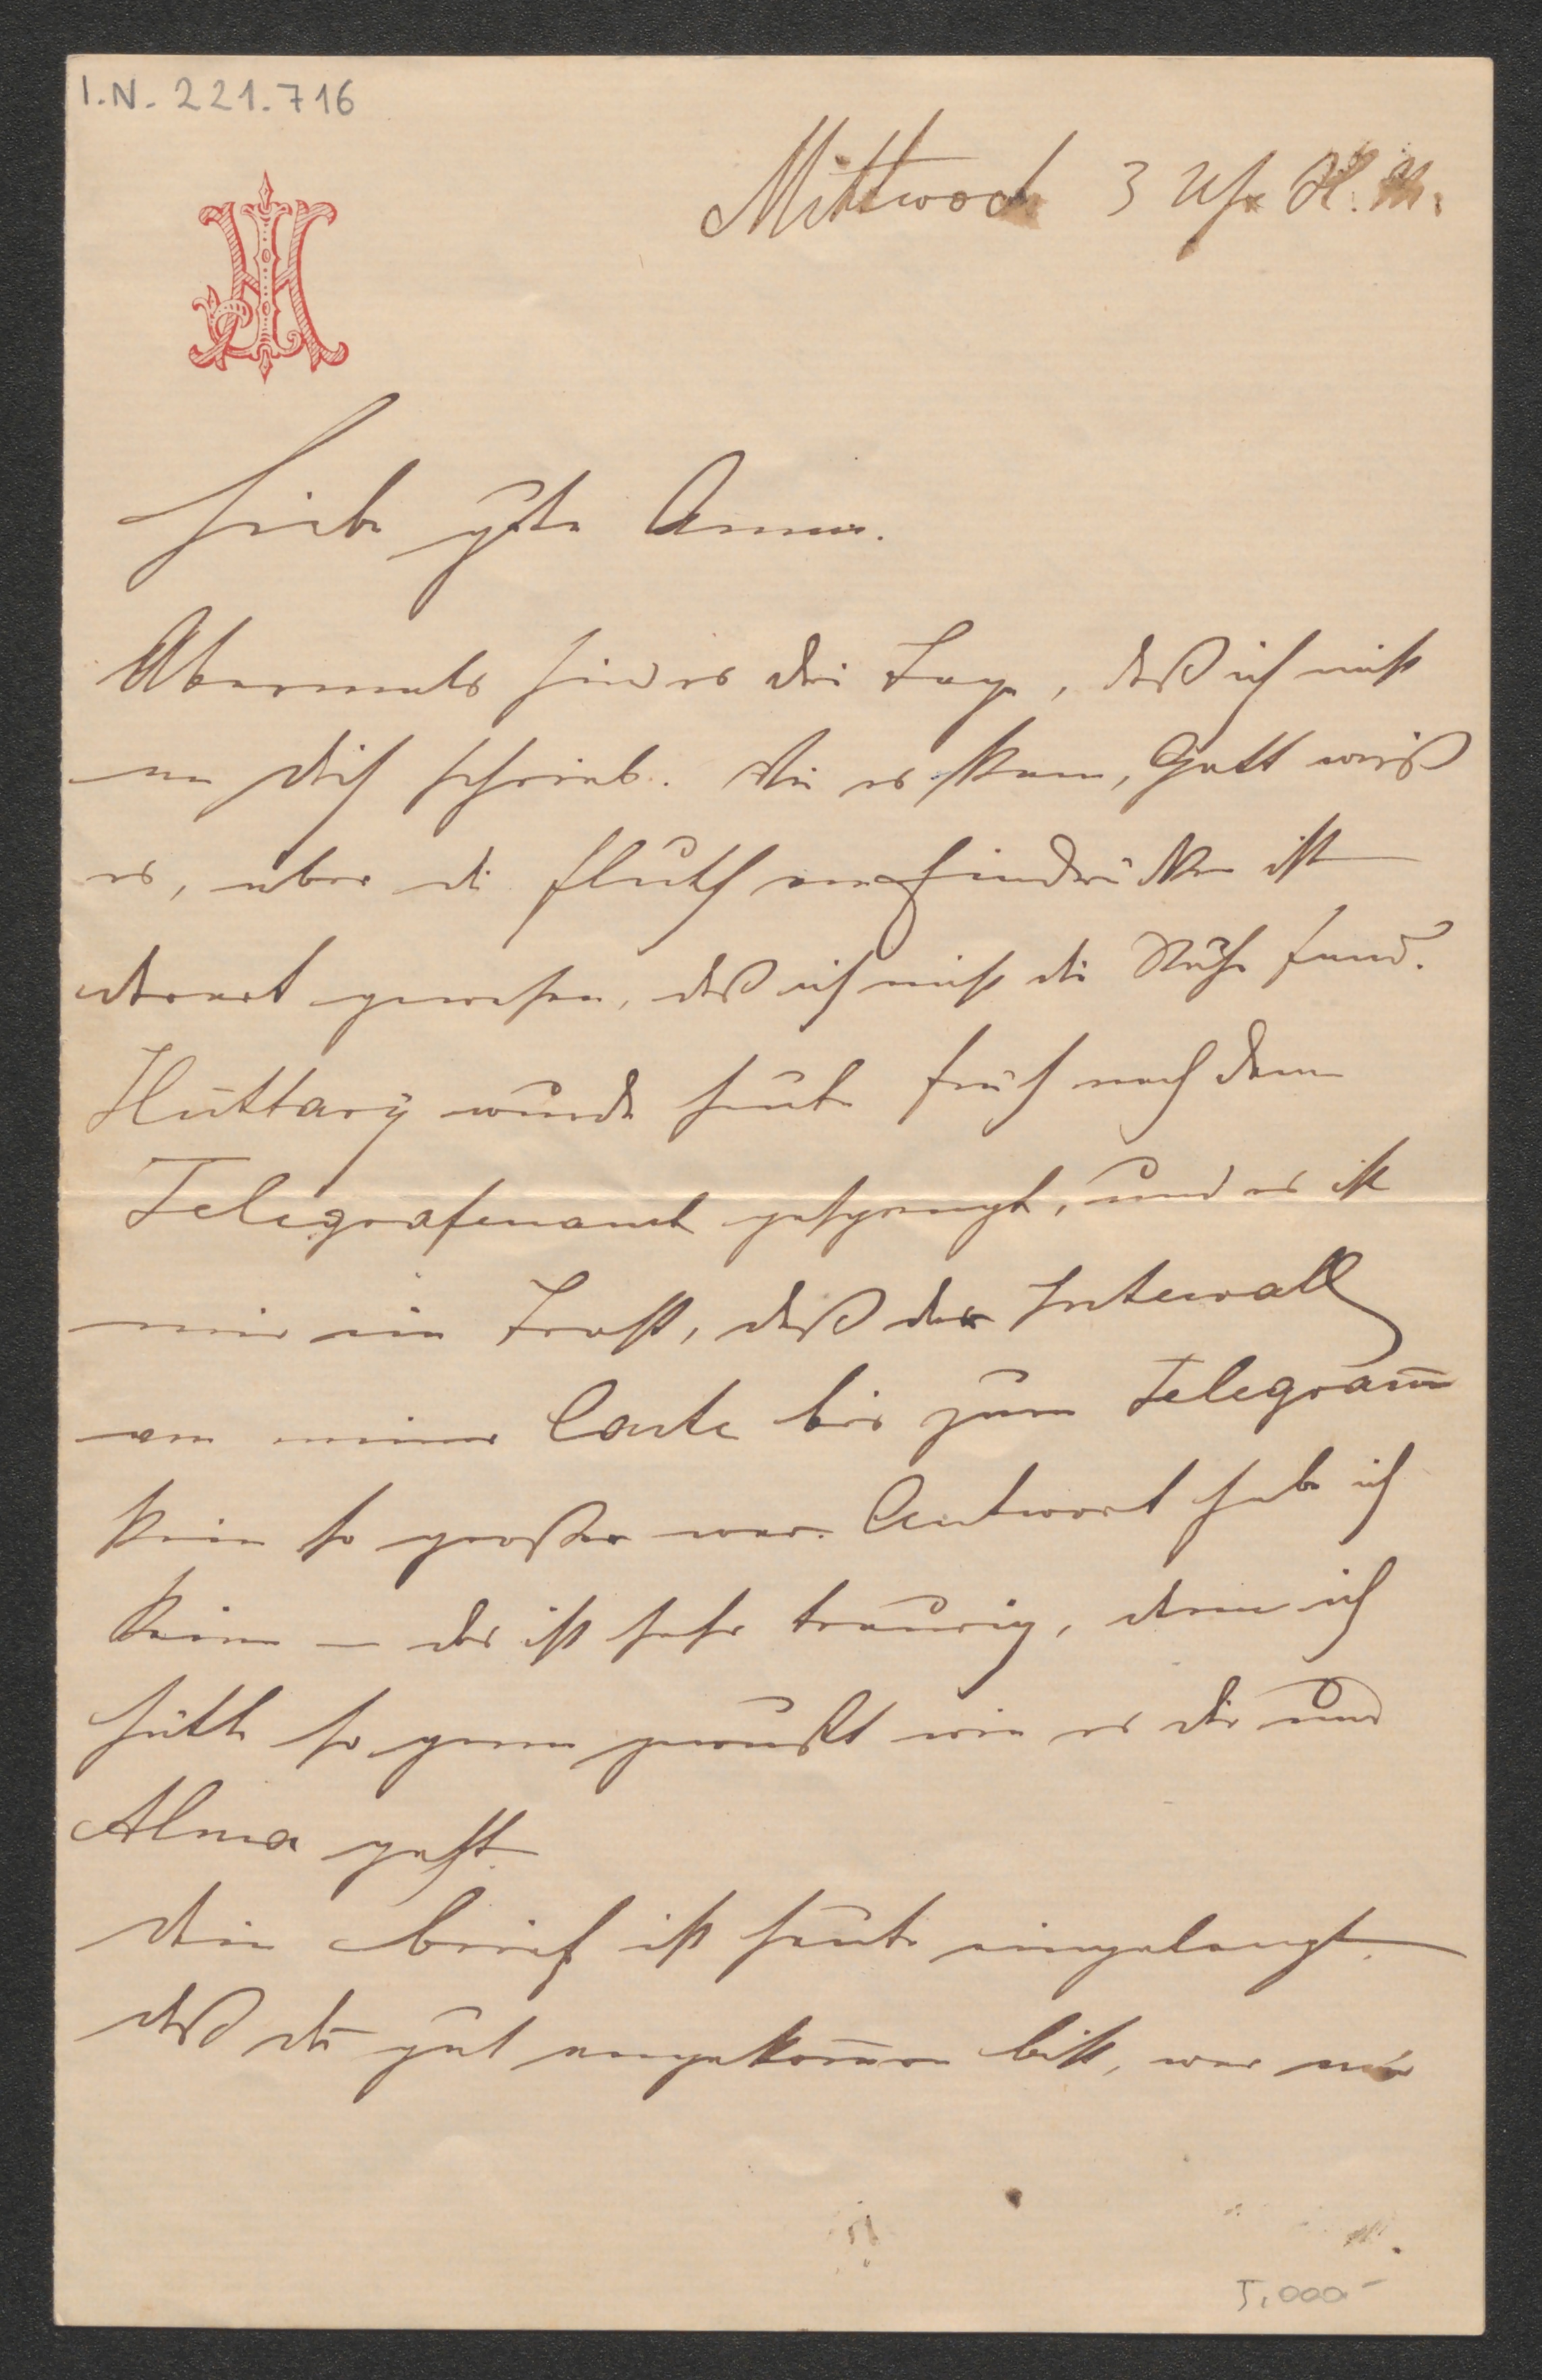 I.N. 221.716
Mittwoch 3 Uhr N. M.
Liebe gute Anna.
Abermals sind es drei Tage, daß ich nicht
an dich schrieb. Wie es kam, Gott weiß
es, aber die Fluth von Eindrücken ist
derart gewesen, daß ich nicht die Ruhe fand.
Huttary wurde heute früh nach dem
Telegrafenamt gesprengt, und es ist
mir ein Trost, daß der Intervall
von meiner Carte bis zum Telegram̅
kein so großer war. Antwort habe ich
keine – das ist sehr traurig, denn ich
hätte so gerne gewußt wie es dir und
Alma geht.
Dein Brief ist heute eingelangt.
daß du gut angekom̅en bist, war mir
5.000.-